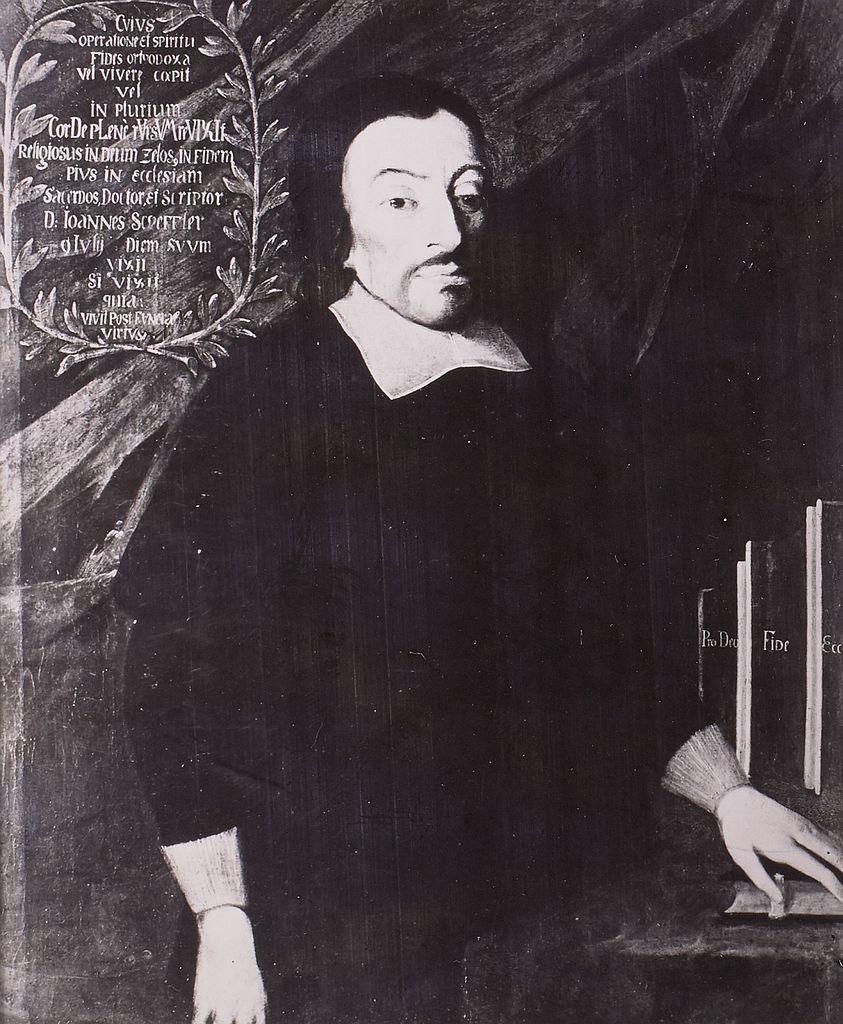 CVIVS
operatione et spiritu
Fides orthodoxa
vel vivere cœpit
vel
in plurium
CorDe pLenè
Religiosus in Deum zelos, in Fidem
Pivs in ecclesiam
Sacerdos, Doctor, et Scriptor
D. Ioannes Scheffler
9 Iulij Diem Suum
vixit
Si vixit
quia
vivit Post Funera
virtus
Pro Deo Fide Ecc